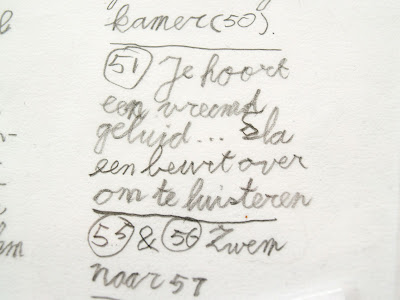 kamer (50).
51 Je hoort
een vreemd
geluid... Sla
een beurt over
om te luisteren
55 & 56 Zwem
naar 57